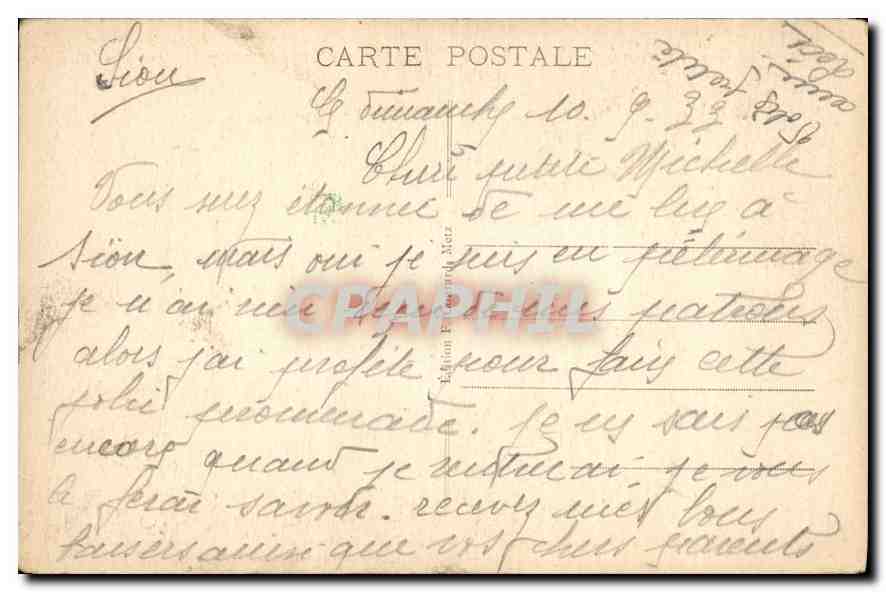 CARTE POSTALE
Sion
Le dimanche 10. 9. 33
Chere petite Michelle
Vous serez étonnee de me lire a
Sion, mais oui je suis en pélérinage
je n'ai rien mes patrons
alors j'ai profité pour faire cette
jolie promenade. je ne sais pas
encore quand je rentrerai je vous
le ferai savoir. recevez mes bons
baisers ainsi que vos chers parents
Edition Metz
CPAPHIL